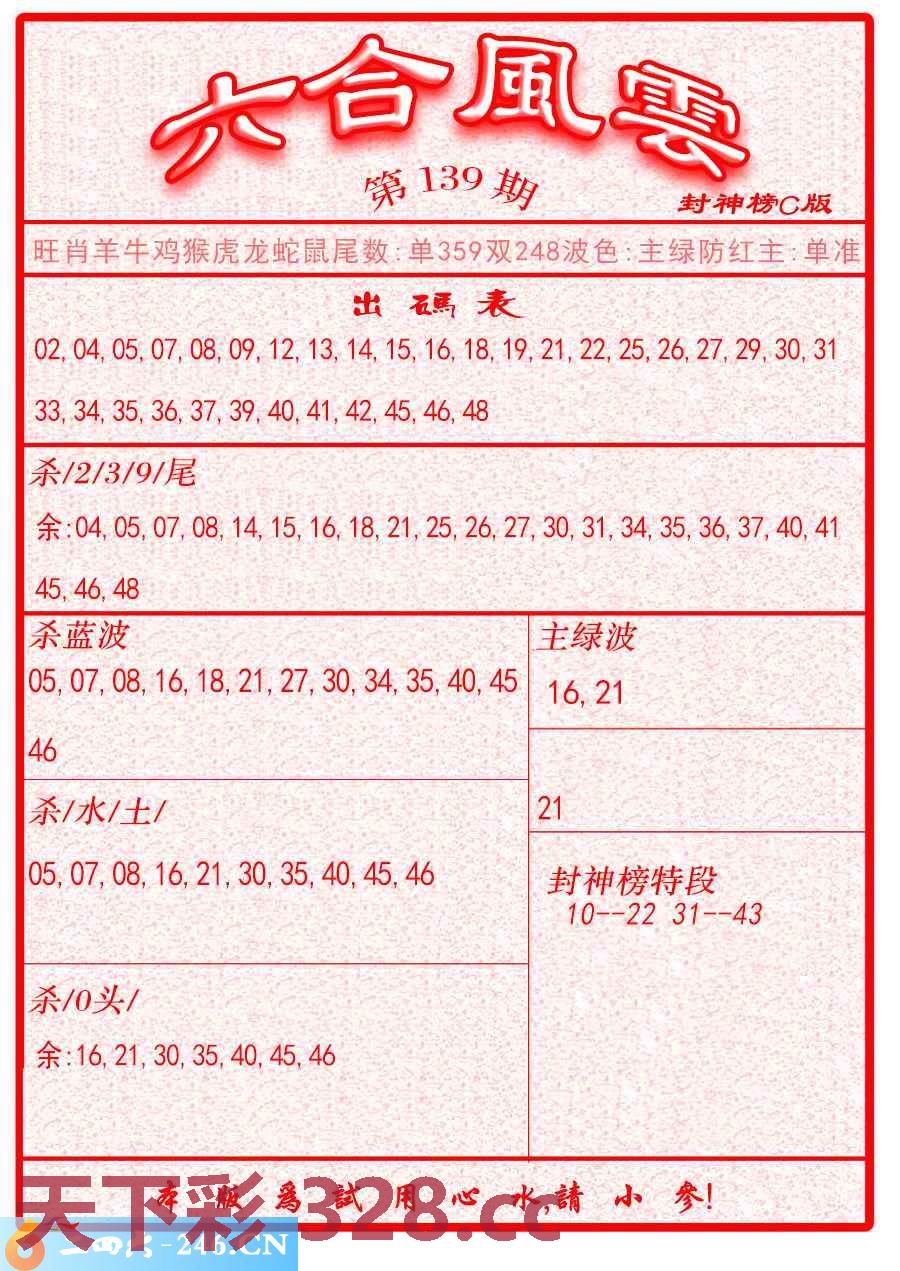 六合風雲
第139期
封神榜C版
旺肖羊牛鸡猴虎龙蛇鼠尾数:单359双248波色:主绿防红主:单准
出碼表
02,04,05,07,08,09,12,13,14,15,16,18,19,21,22,25,26,27,29,30,31
33,34,35,36,37,39,40,41,42,45,46,48
杀/2/3/9/尾
余:04,05,07,08,14,15,16,18,21,25,26,27,30,31,34,35,36,37,40,41
45,46,48
杀蓝波
05,07,08,16,18,21,27,30,34,35,40,45
46
主绿波
16,21
21
杀/水/土/
05,07,08,16,21,30,35,40,45,46
封神榜特段
10--22 31--43
杀/0头/
余:16,21,30,35,40,45,46
本版爲試用心水,請小參!
天下彩328.cc
-246.CN